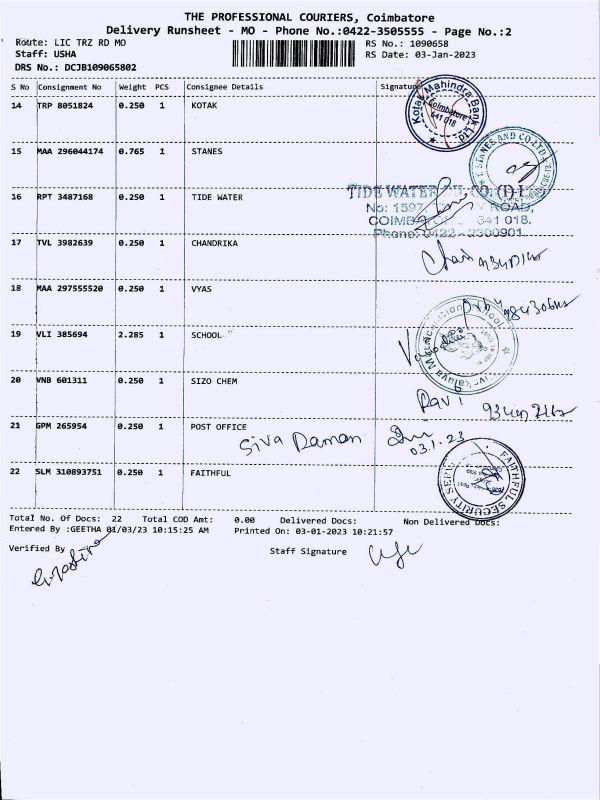 THE PROFESSIONAL COURIERS, Coimbatore
Delivery Runsheet - MO - Phone No.:0422-3505555 - Page No.:2
Route: LIC TRZ RD MO
RS No.: 1090658
Staff: USHA
RS Date: 03-Jan-2023
DRS No.: DCJB109065802
S No Consignment No Weight PCS Consignee Details Signature
14 TRP 8051824 0.250 1 KOTAK
Kotak Mahindra Bank Ltd.
Coimbatore
641 018
15 MAA 296044174 0.765 1 STANES
STANES AND CO LTD
16 RPT 3487168 0.250 1 TIDE WATER
TIDE WATER OIL CO. (I) L
No: 1597, ROAD,
COIMBATORE 641 018.
Phone: 0422 - 2300901
17 TVL 3982639 0.250 1 CHANDRIKA
18 MAA 297555520 0.250 1 VYAS
19 VLI 385694 2.285 1 SCHOOL
20 VNB 601311 0.250 1 SIZO CHEM
Ravi
21 GPM 265954 0.250 1 POST OFFICE
Siva Raman
03.1.23
22 SLM 310893751 0.250 1 FAITHFUL
FAITHFUL SECURITY SERV
Total No. Of Docs: 22 Total COD Amt: 0.00 Delivered Docs: Non Delivered Docs:
Entered By :GEETHA 01/03/23 10:15:25 AM Printed On: 03-01-2023 10:21:57
Verified By
Staff Signature